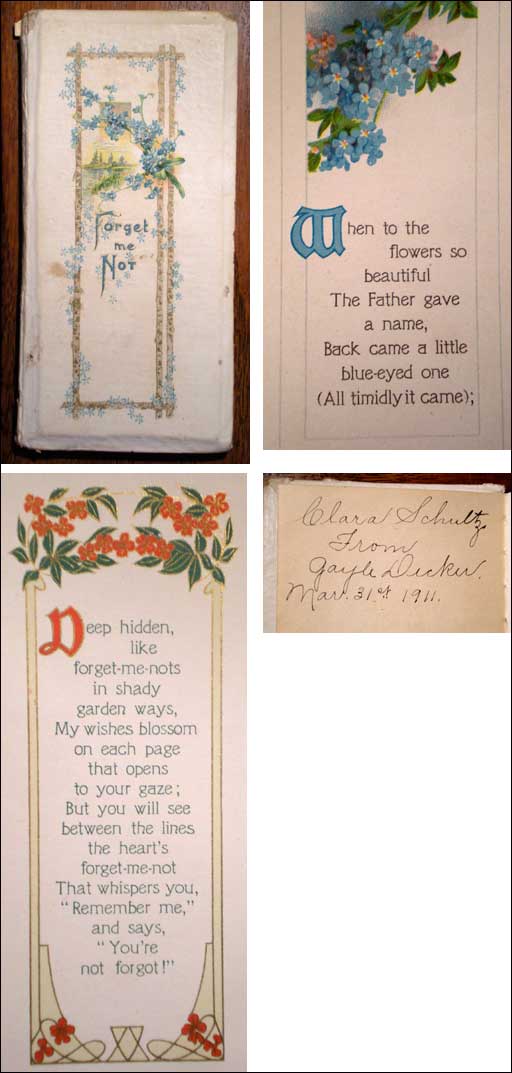 Forget
me
Not
When to the
flowers so
beautiful
The Father gave
a name,
Back came a little
blue-eyed one
(All timidly it came);
Deep hidden,
like
forget-me-nots
in shady
garden ways,
My wishes blossom
on each page
that opens
to your gaze;
But you will see
between the lines
the heart's
forget-me-not
That whispers you,
"Remember me,"
and says,
"You're
not forgot!"
Clara Schultz
From
Gayle Decker.
Mar. 31st. 1911.